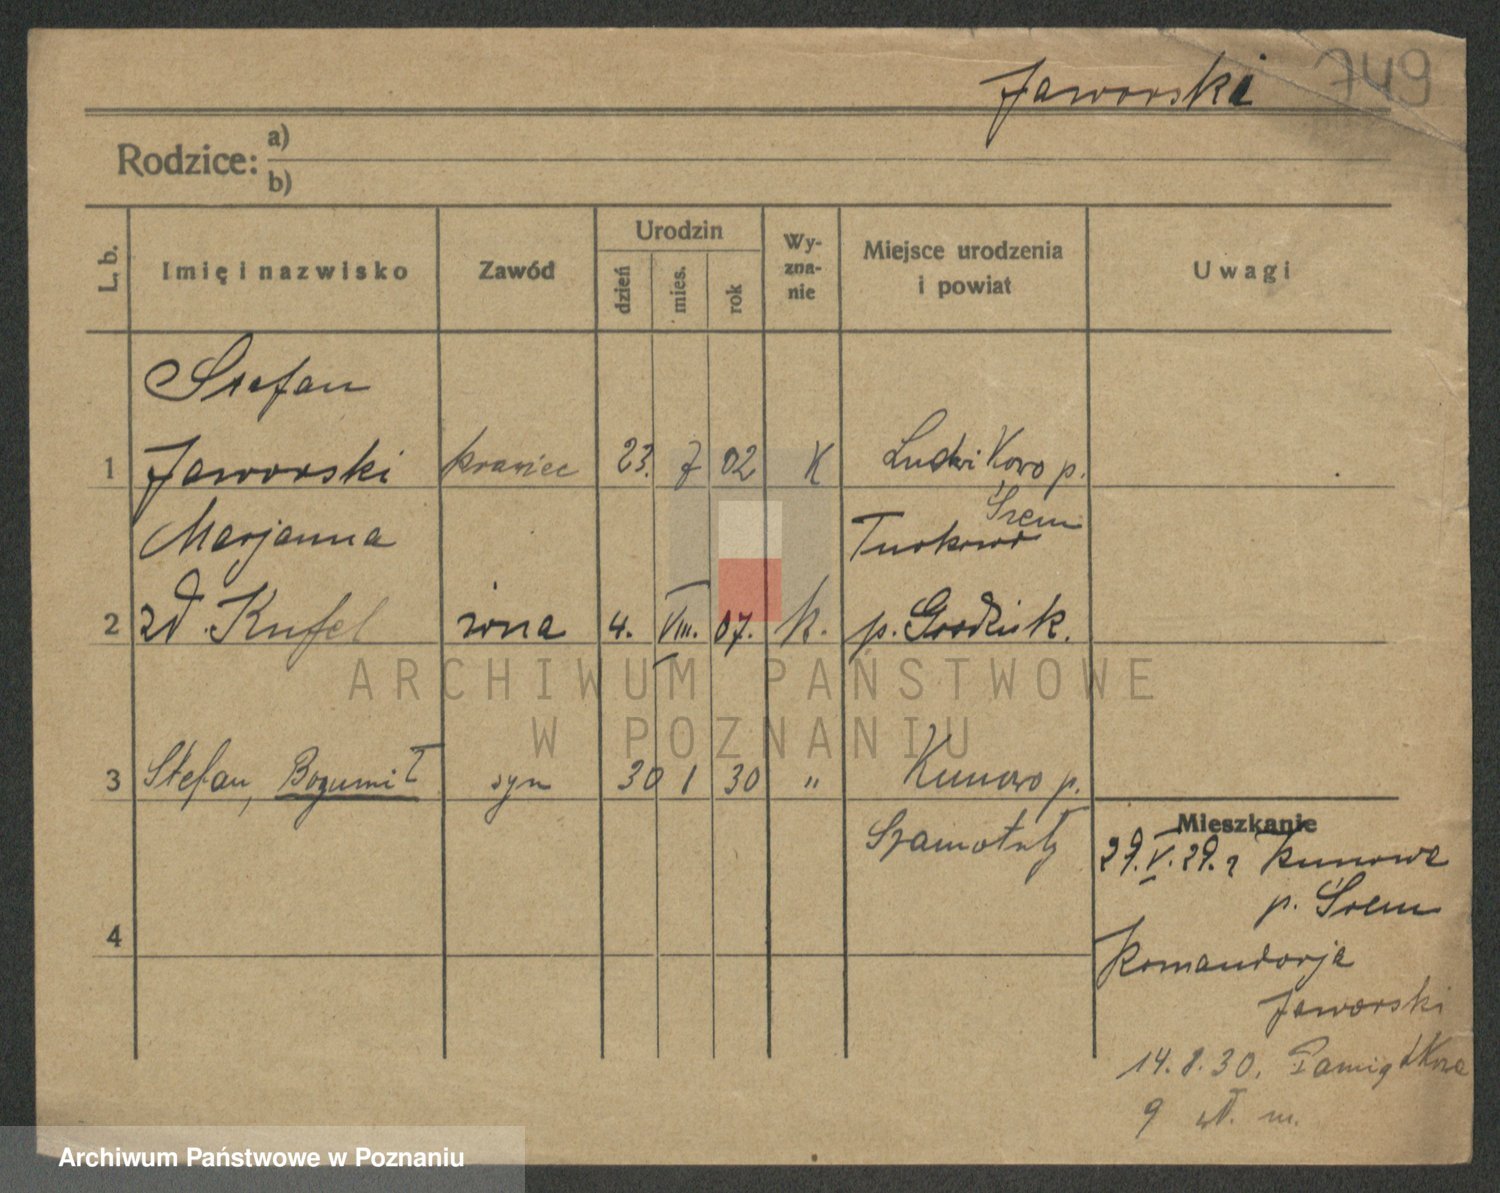 Jaworski 749
Rodzice: a)
b)
L. b. Imię i nazwisko Zawód Urodzin dzień mies. rok Wy-zna-nie Miejsce urodzenia i powiat Uwagi
Stefan
1 Jaworski krawiec 23. 7 02 K Ludwikowo p.
Śrem
Marjanna Turkowo
2 zd. Kufel żona 4. VIII. 07. k. p. Grodzisk.
3 Stefan, Bogumił syn 30 1 30 " Kunowo p.
Szamotuły
Mieszkanie
29.V.29. z Kunowa
p. Śrem
4
Komandorja
Jaworski
14.8.30. Pamiątkowa
9 wł. m.
ARCHIWUM PAŃSTWOWE
W POZNANIU
Archiwum Państwowe w Poznaniu